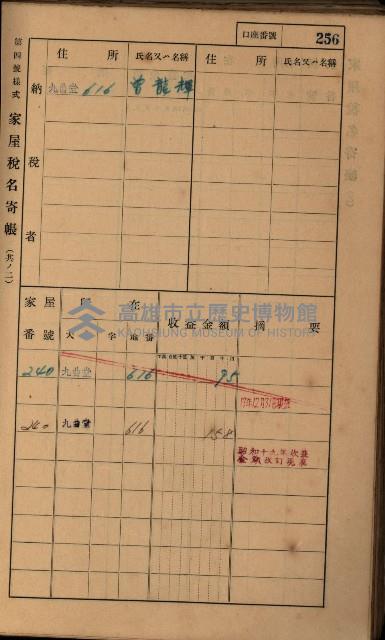 口座番號 256
第四號樣式 家屋稅名寄帳 (其ノ二)
納稅者
住所 氏名又ハ名稱 住所 氏名又ハ名稱
九曲堂 616 曾龍輝
家屋番號 家屋所在 大字 地番 收益金額 摘要
240 九曲堂 616 95
240 九曲堂 616 158
昭和十九年收益
金額改訂現在
高雄市立歷史博物館
KAOHSIUNG MUSEUM OF HISTORY